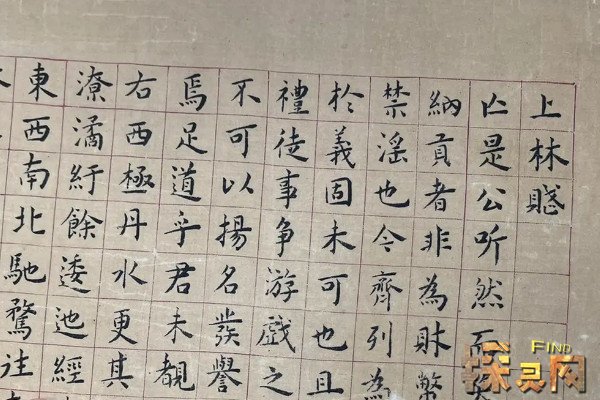 上林賦
亡是公听然而
納貢者非為財幣
禁淫也今齊列為
於義固未可也且
禮徒事争游戲之
不可以揚名發譽
焉足道乎君未覩
右西極丹水更其
潦潏紆餘逶迤經
東西南北馳騖往
探灵网
FIND